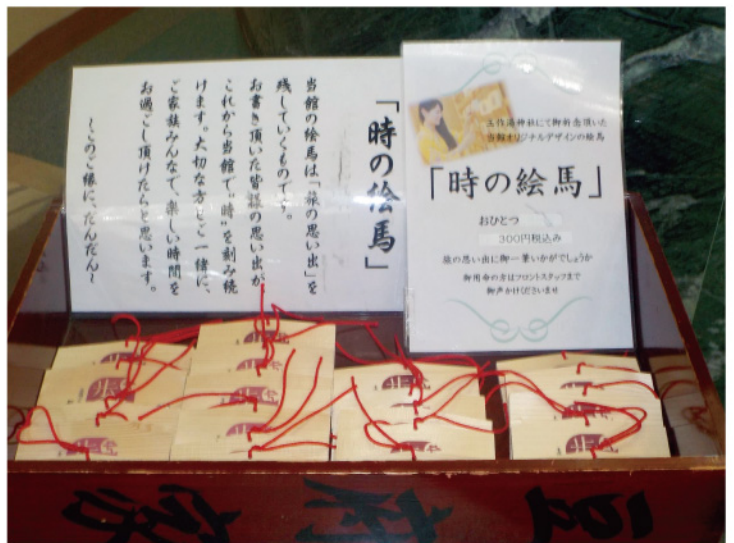 「時の絵馬」
当館の絵馬は「旅の思い出」を
残していくものです。
お書き頂いた皆様の思い出が
これから当館で〝時〟を刻み続
けます。大切な方とご一緒に、
ご家族みんなで、楽しい時間を
お過ごし頂けたらと思います。
～このご縁に、だんだん～
玉作湯神社にて御祈念頂いた
当館オリジナルデザインの絵馬
「時の絵馬」
おひとつ
300円税込み
旅の思い出に御一筆いかがでしょうか
御用命の方はフロントスタッフまで
御声かけくださいませ